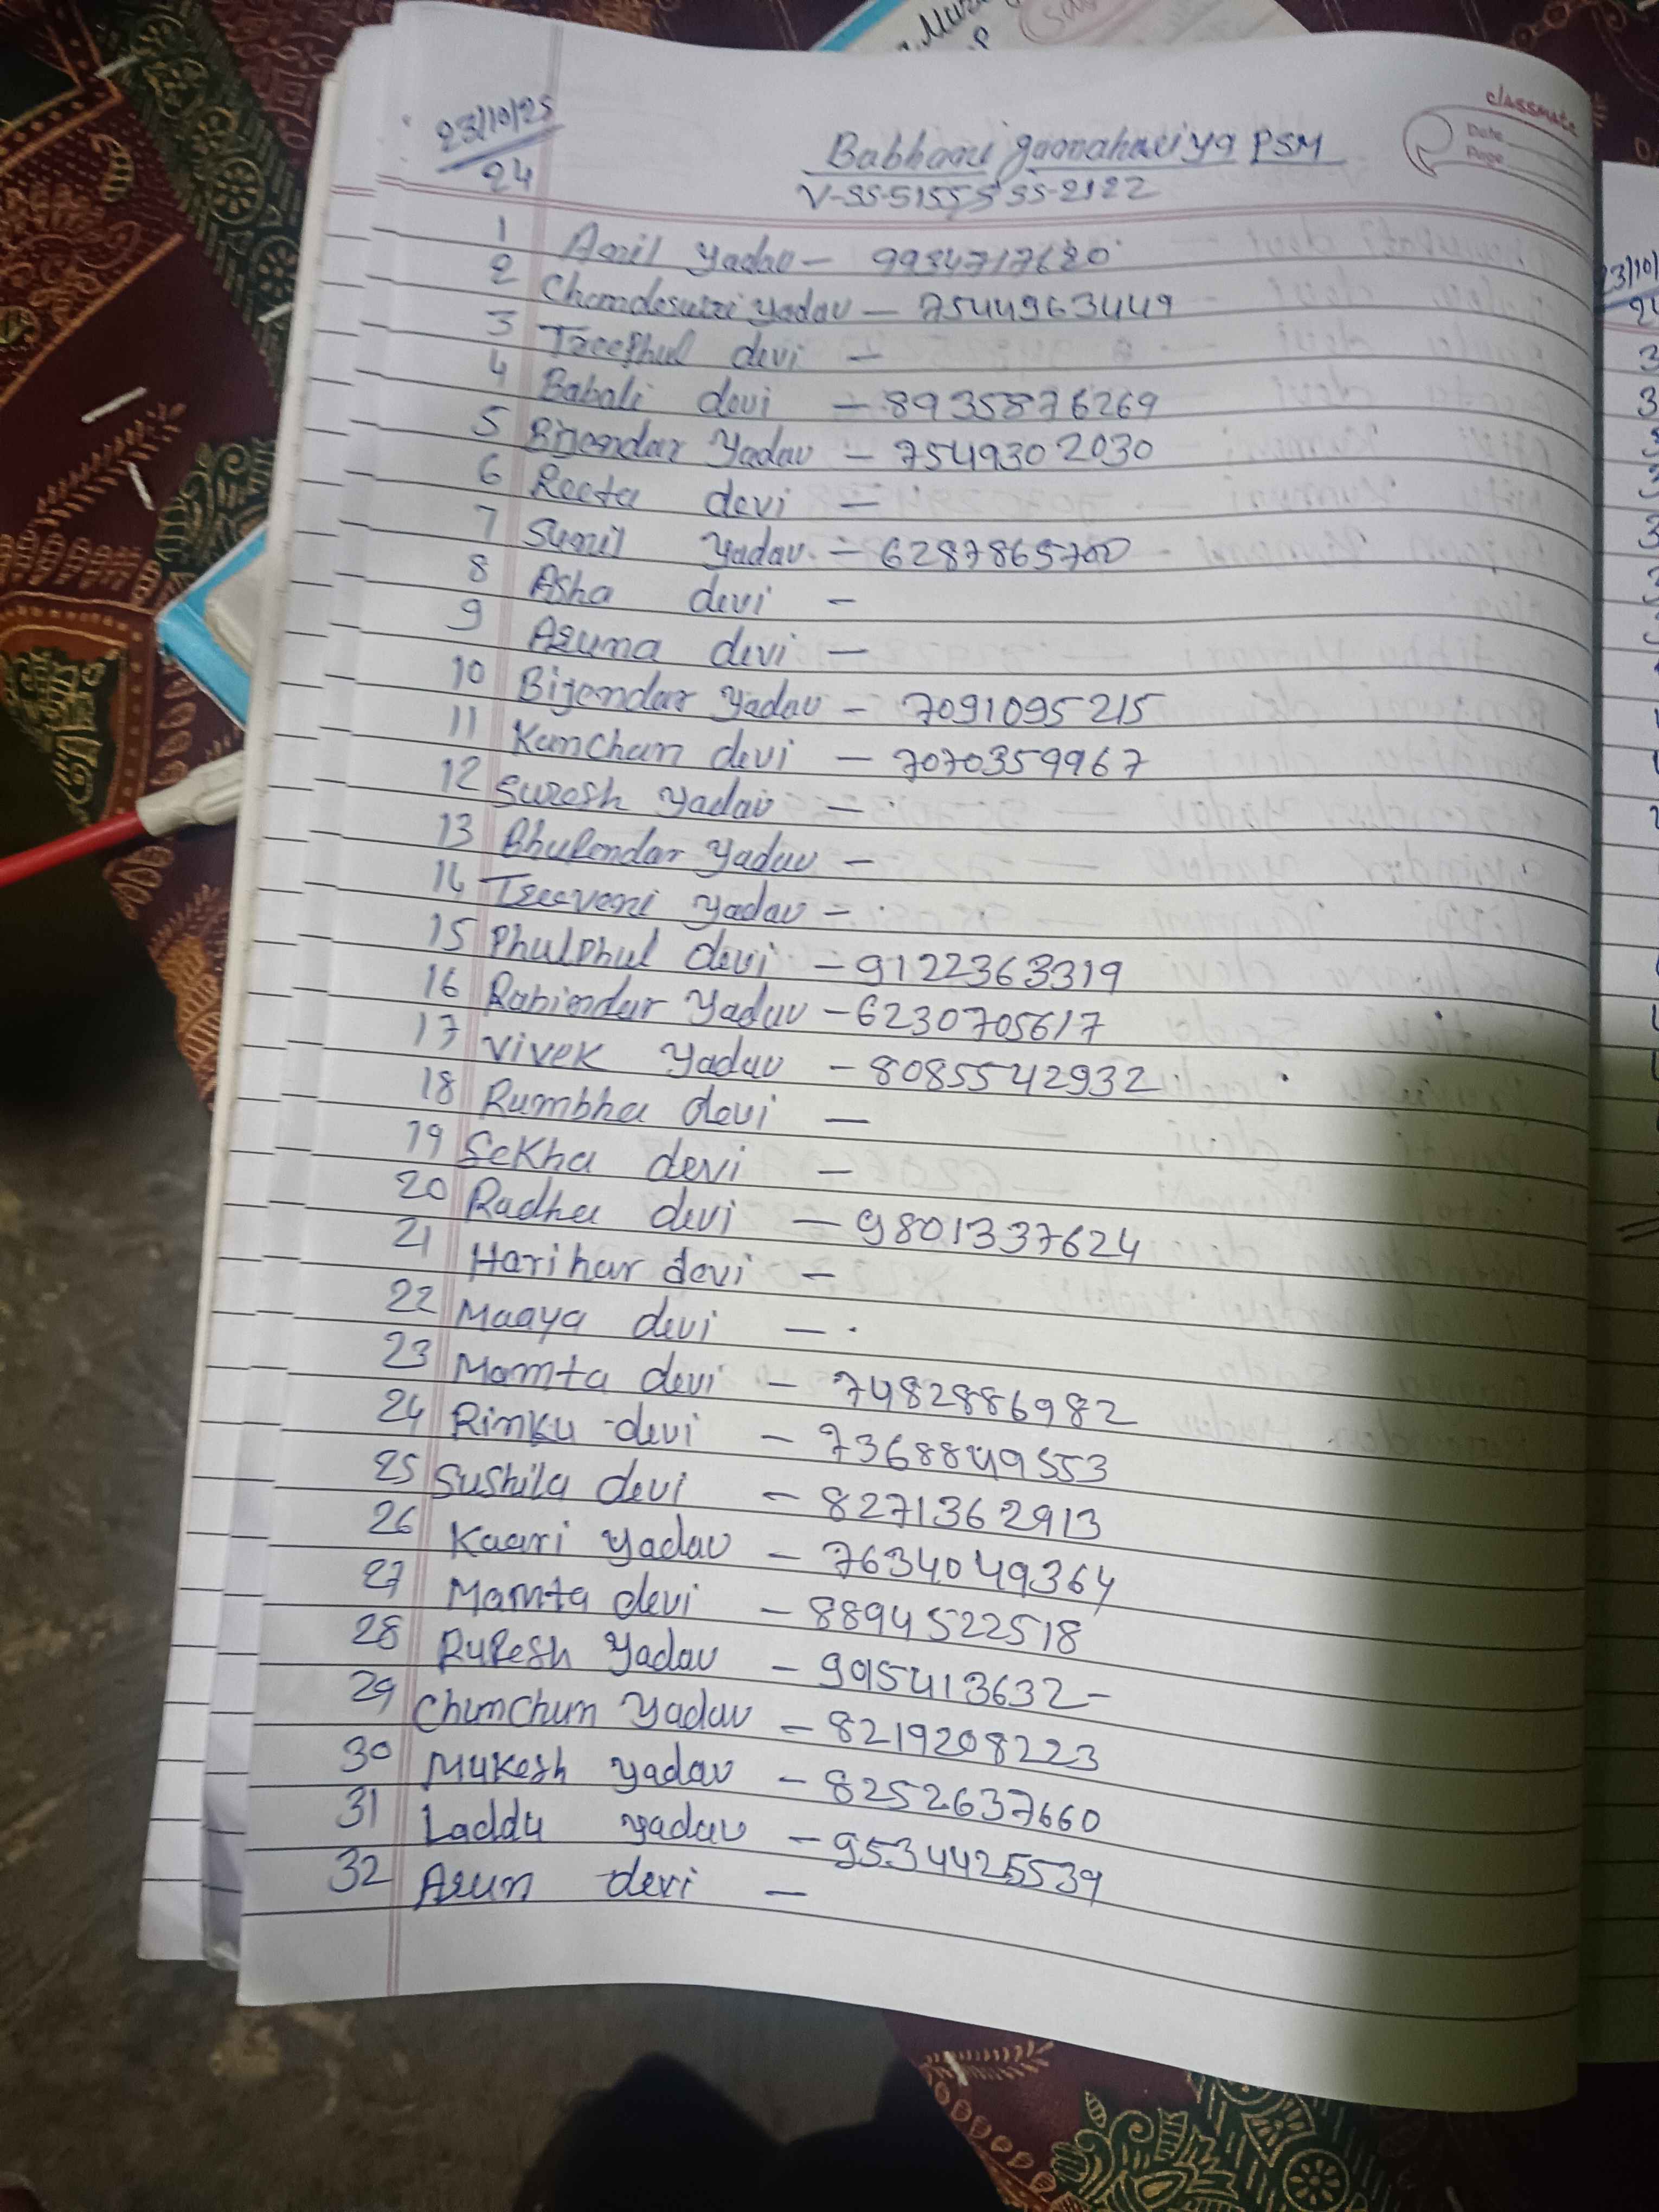 classmate
Date
Page
23/10/25
24
Babhani goonahaiya PSM
V-SS-5155 SS-2122
1 Anil Yadav - 9934717620
2 Chomdeswri Yadav - 7544963449
3 Treephul devi -
4 Babali devi - 8935876269
5 Bijendar Yadav - 7549302030
6 Reeta devi -
7 Sunil Yadav - 6287865700
8 Asha devi -
9 Aruna devi -
10 Bijendar Yadav - 7091095215
11 Kanchan devi - 7070359967
12 Suresh Yadav -
13 Bhupendar Yadav -
14 Treeveni Yadav -
15 PhulPhul devi - 9122363319
16 Rabindar Yadav - 6230705617
17 Vivek Yadav - 8085542932
18 Rumbha devi -
19 Sekha devi -
20 Radha devi - 9801337624
21 Harihar devi -
22 Maaya devi -
23 Mamta devi - 7482886982
24 Rinku devi - 7368849553
25 Sushila devi - 8271362913
26 Kaari Yadav - 7634049364
27 Mamta devi - 8894522518
28 Rupesh Yadav - 995413632-
29 Chunchun Yadav - 8219208223
30 Mukesh Yadav - 8252637660
31 Laddu Yadav - 9534425539
32 Arun devi -